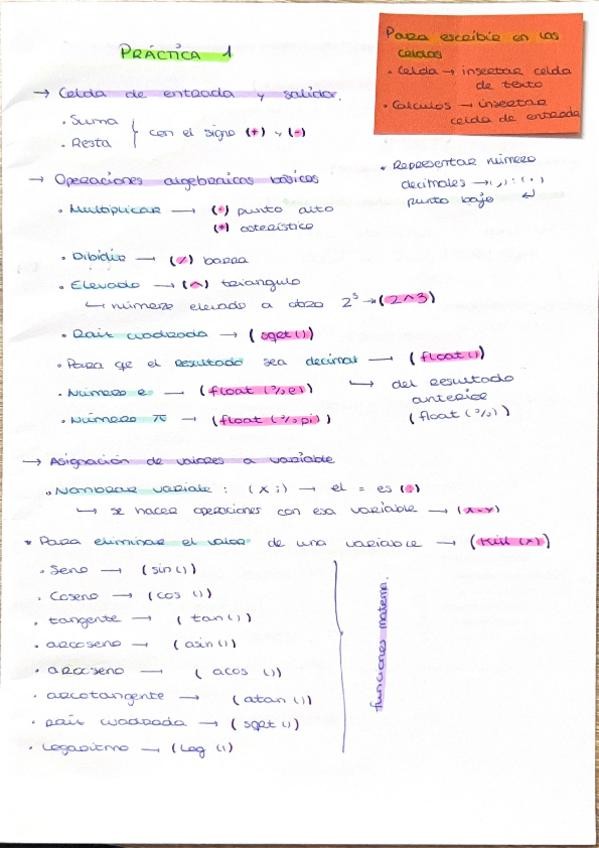 PRÁCTICA 1
Para escribir en las
celdas
• Celda → insertar celda
de texto
• Calculos → insertar
celda de entrada
→ Celda de entrada y salida.
• Suma
• Resta
con el signo (+) y (-)
• Representar número
decimales → (,) : (.)
punto bajo ↵
→ Operaciones algebraicas básicas
• Multiplicar → (·) punto alto
(*) asterístico
• Dibidir → (/) barra
• Elevado → (^) triangulo
↳ número elevado a otro 2³ → (2^3)
• Raiz cuadrada → (sqrt())
• Para qe el resultado sea decimal → (float())
↳ del resultado
anterior
(float(%))
• Número e → (float(%e))
• Número π → (float(%pi))
→ Asignación de valores a variable
• Nombrar variable : (x:) → el = es (:)
↳ se hacer operaciones con esa variable →
* Para eliminar el valor de una variable → (kill(x))
• Seno → (sin())
• Coseno → (cos ())
• tangente → (tan())
• arcoseno → (asin())
• arcoseno → (acos ())
• arcotangente → (atan())
• raiz cuadrada → (sqrt())
• Logaritmo → (log ())
funciones matema.